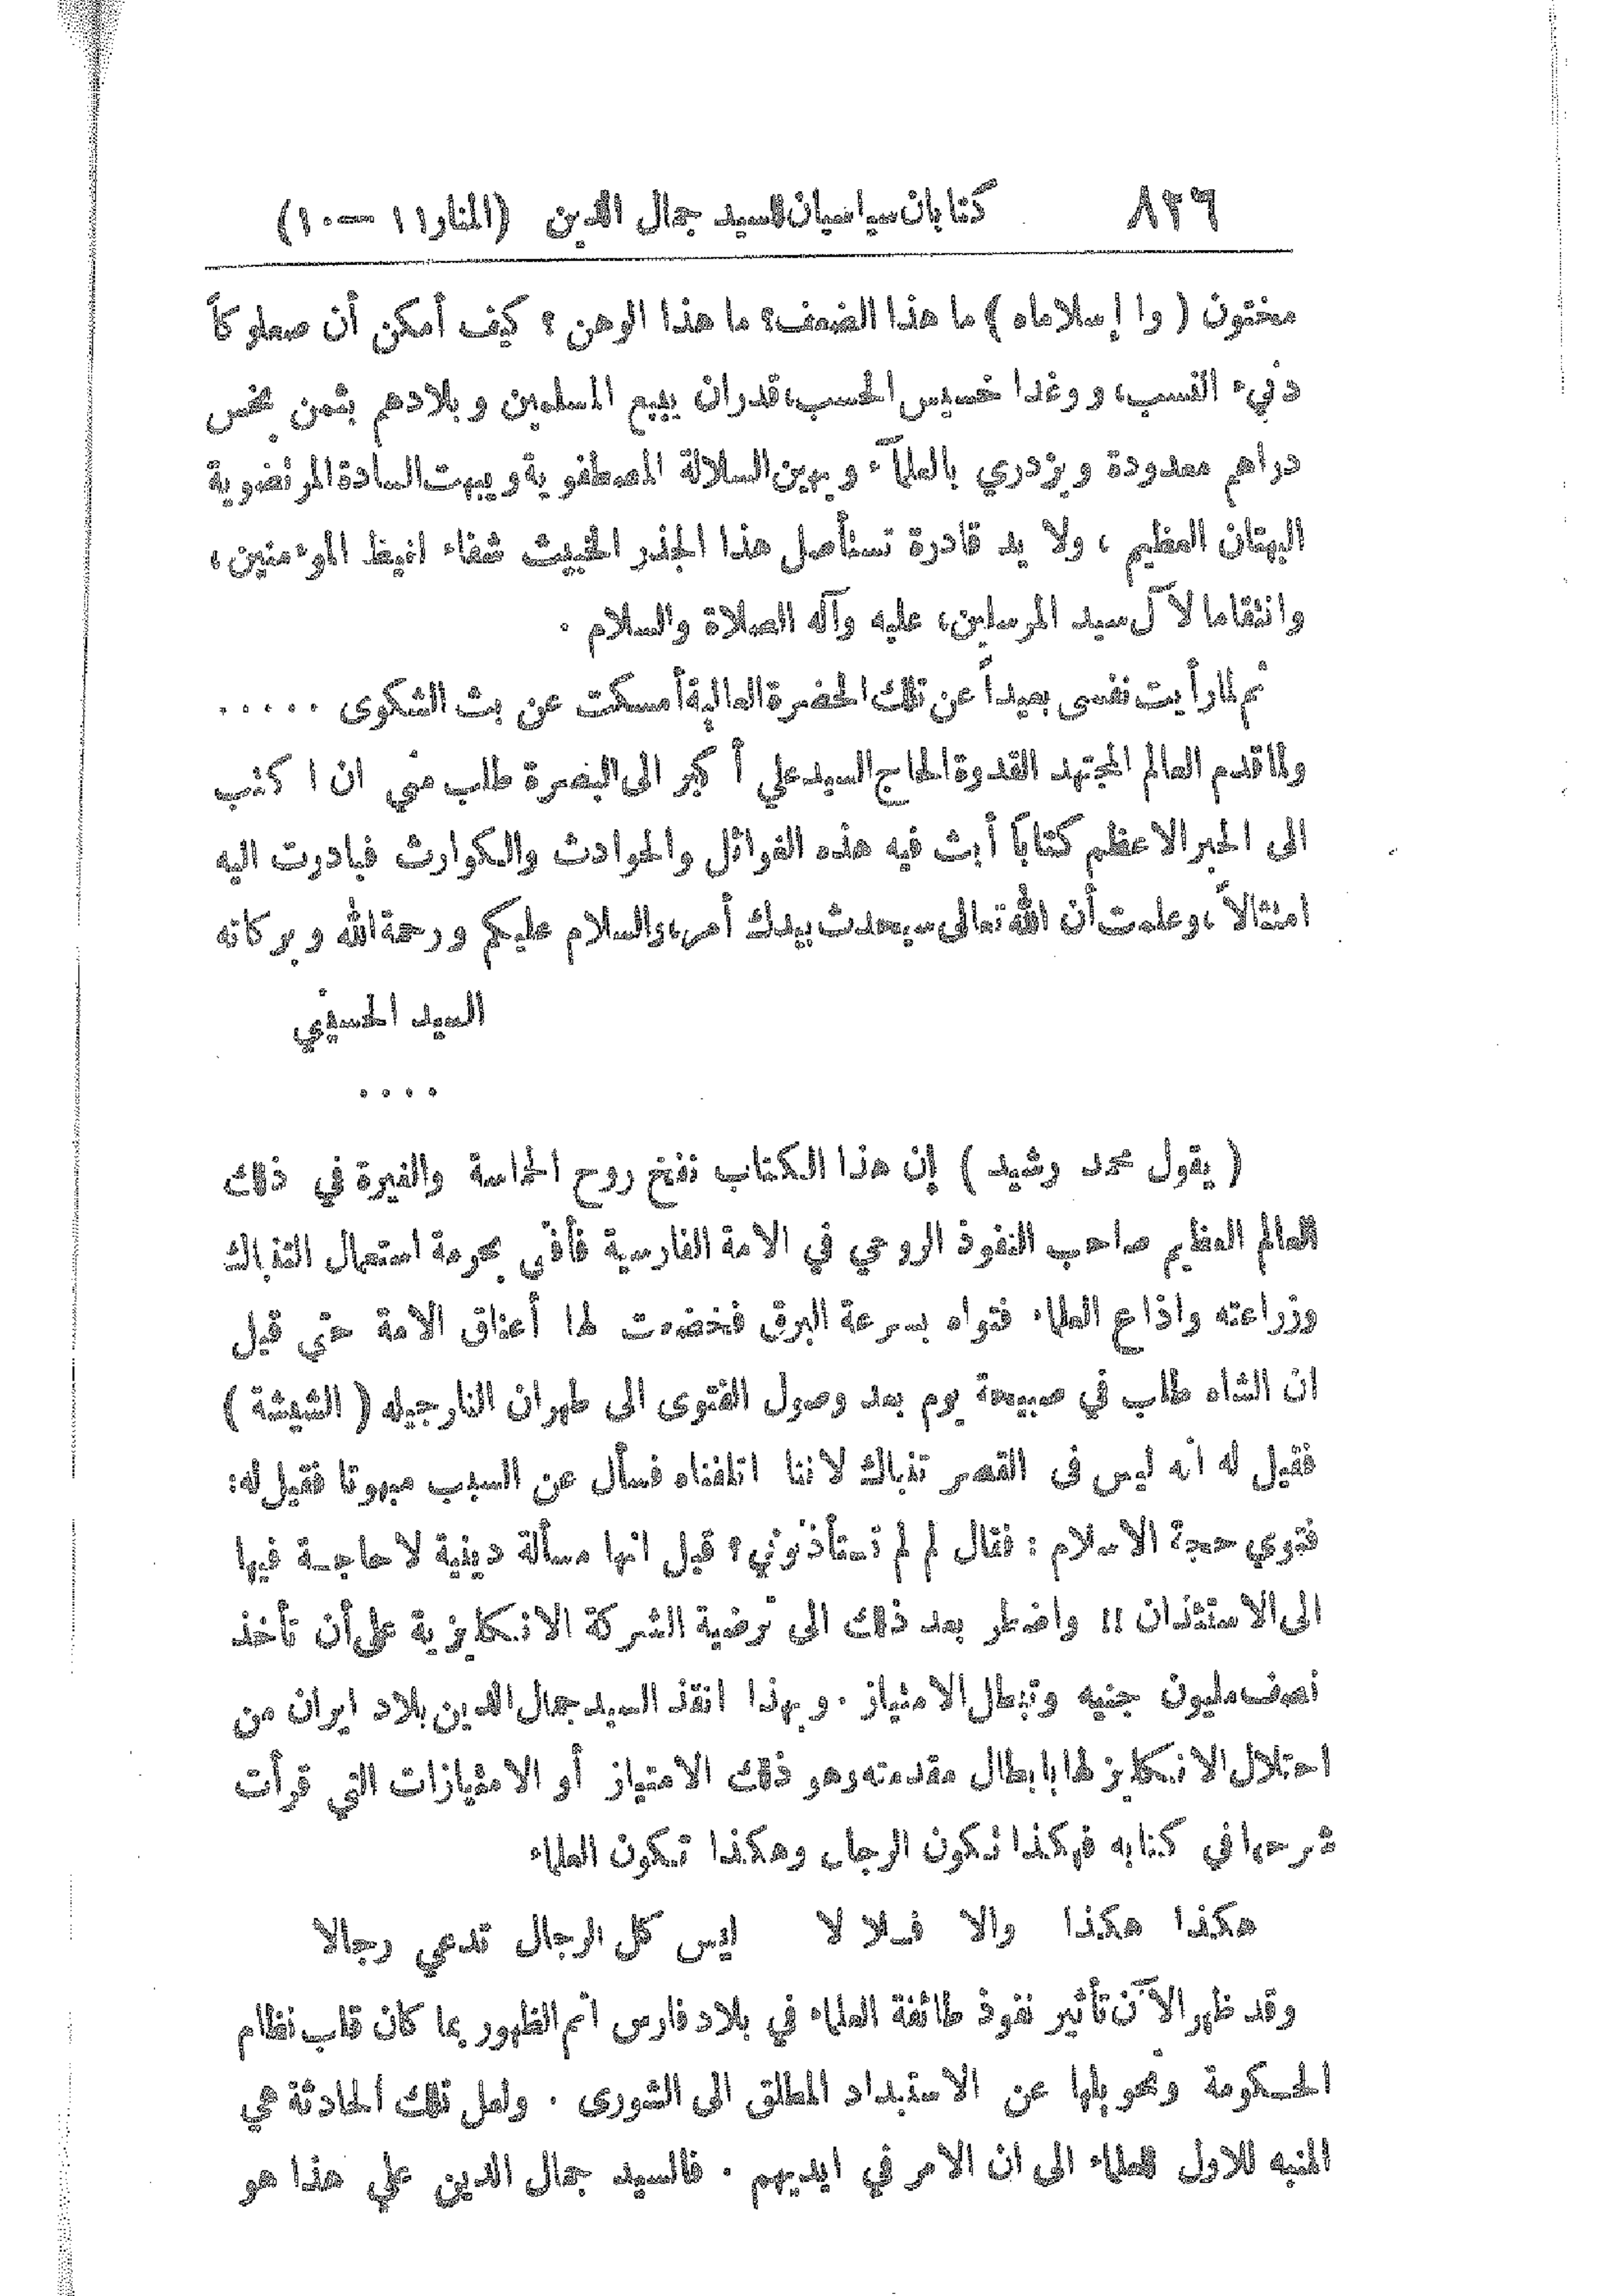 ٨٢٦ كتابان سياسيان للسيد جمال الدين (المنار ١١ — ١٠)
مختون ( وا إسلاماه ) ما هذا الضعف؟ ما هذا الوهن ؟ كيف أمكن أن صعلوكاً
دنيء النسب، ووغدا خسيس الحسب، قدر ان يبيع المسلمين وبلادهم بثمن بخس
دراهم معدودة ويزدري بالعلمآء ويهين السلالة المصطفوية ويبهت السادة المرتضوية
البهتان العظيم ، ولا يد قادرة تستأصل هذا الجذر الخبيث شفاء لغيظ المؤمنين،
وانتقاما لآل سيد المرسلين، عليه وآله الصلاة والسلام .
ثم لما رأيت نفسى بعيداً عن تلك الحضرة العالية أمسكت عن بث الشكوى . . . . .
ولما قدم العالم المجتهد القدوة الحاج السيد علي أكبر الى البصرة طلب مني ان اكتب
الى الحبر الاعظم كتاباً أبث فيه هذه الغوائل والحوادث والكوارث فبادرت اليه
امتثالاً، وعلمت أن الله تعالى سيحدث بيدك أمرا، والسلام عليكم ورحمة الله وبركاته
السيد الحسيني
. . . .
( يقول محمد رشيد ) إن هذا الكتاب نفخ روح الحماسة والغيرة في ذلك
العالم العظيم صاحب النفوذ الروحي في الامة الفارسية فأفتى بحرمة استعمال التنباك
وزراعته واذاع العلماء فتواه بسرعة البرق فخضعت لها أعناق الامة حتى قيل
ان الشاه طلب في صبيحة يوم بعد وصول الفتوى الى طهران النارجيله ( الشيشة )
فقيل له انه ليس فى القصر تنباك لاننا اتلفناه فسأل عن السبب مبهوتا فقيل له:
فتوي حجة الاسلام : فقال لم لم تستأذنوني؟ قيل انها مسألة دينية لا حاجة فيها
الى الاستئذان !! واضطر بعد ذلك الى ترضية الشركة الانكليزية على أن تأخذ
نصف مليون جنيه وتبطل الامتياز . وبهذا انقذ السيد جمال الدين بلاد ايران من
احتلال الانكليز لها بابطال مقدمته وهو ذلك الامتياز أو الامتيازات التي قرأت
شرحها في كتابه فهكذا تكون الرجال وهكذا تكون العلماء
هكذا هكذا والا فلا لا ليس كل الرجال تدعي رجالا
وقد ظهر الآن تأثير نفوذ طائفة العلماء في بلاد فارس اتم الظهور بما كان قلب نظام
الحكومة وتحويلها عن الاستبداد المطلق الى الشورى . ولعل تلك الحادثة هي
المنبه للاول للعلماء الى ان الامر في ايديهم . فالسيد جمال الدين علي هذا هو